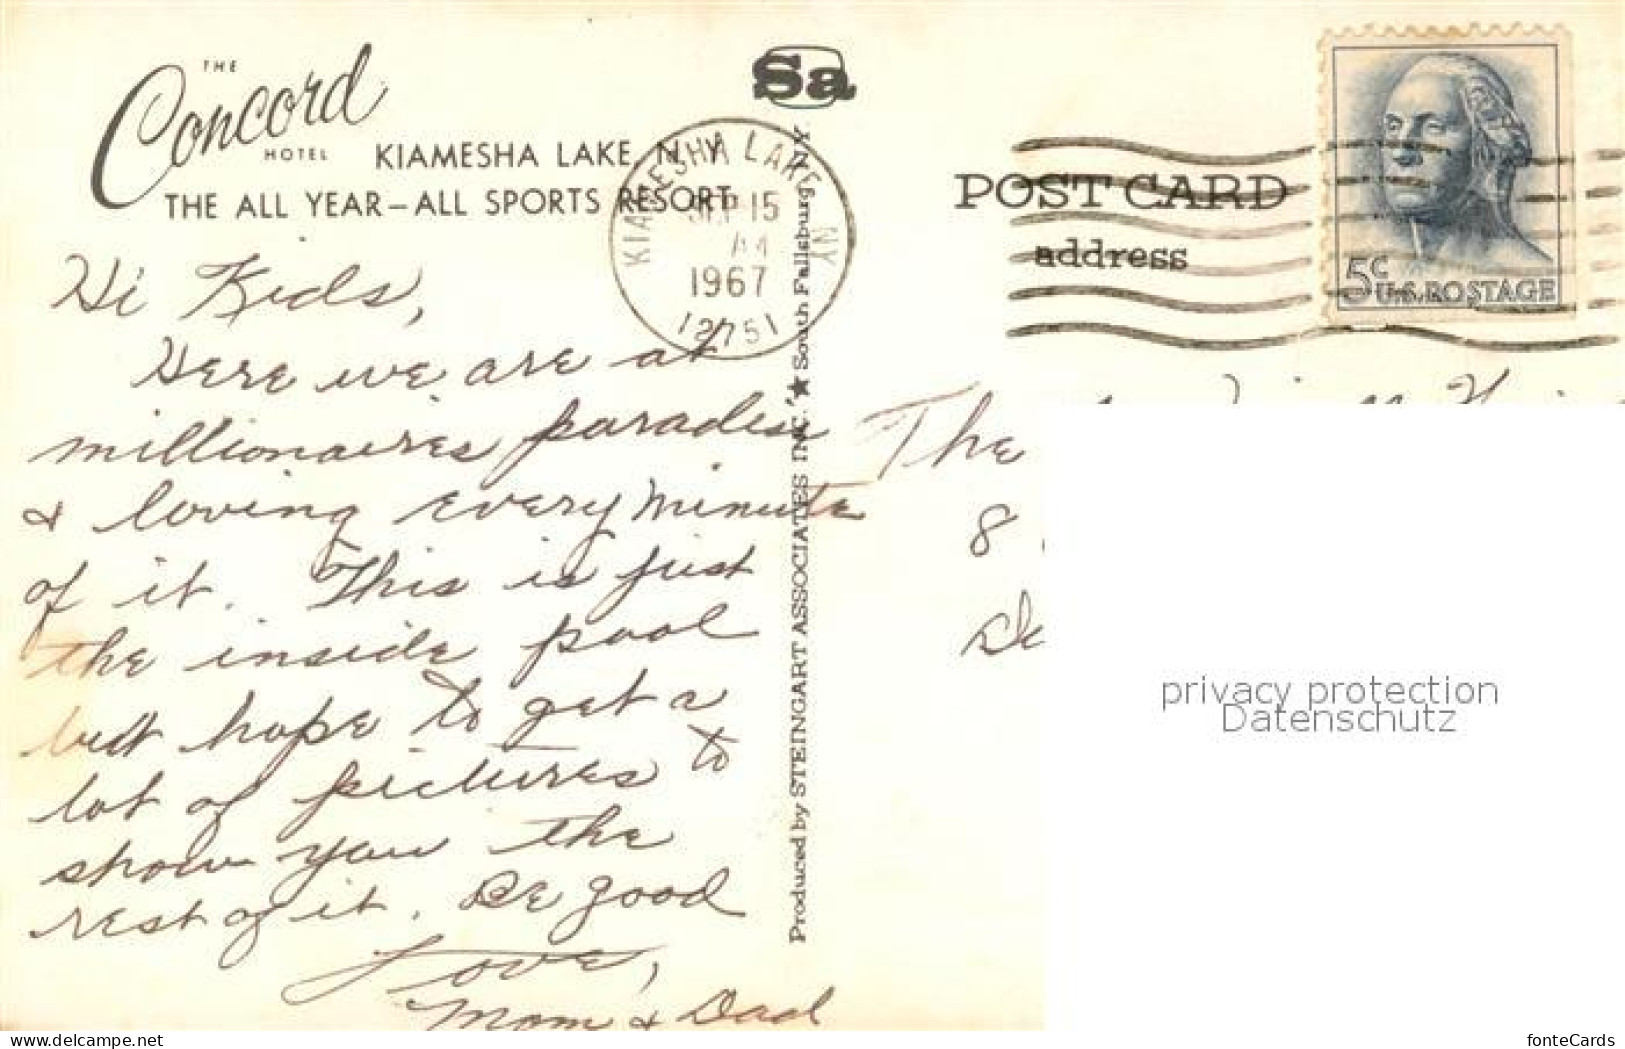 THE
Concord
HOTEL
KIAMESHA LAKE, N. Y.
THE ALL YEAR – ALL SPORTS RESORT
Sa
KIAMESHA LAKE NY
SEP 15
AM
1967
12751
POST CARD
address
5c
U.S. POSTAGE
Hi Kids,
Here we are at
millionaires paradise
& loving every minute
of it. This is just
the inside pool
but hope to get a
lot of pictures to
show you the
rest of it. Be good
Love,
Mom & Dad
Produced by STEINGART ASSOCIATES INC. ★ South Fallsburg, N.Y.
The
8
privacy protection
Datenschutz
www.delcampe.net
fonteCards